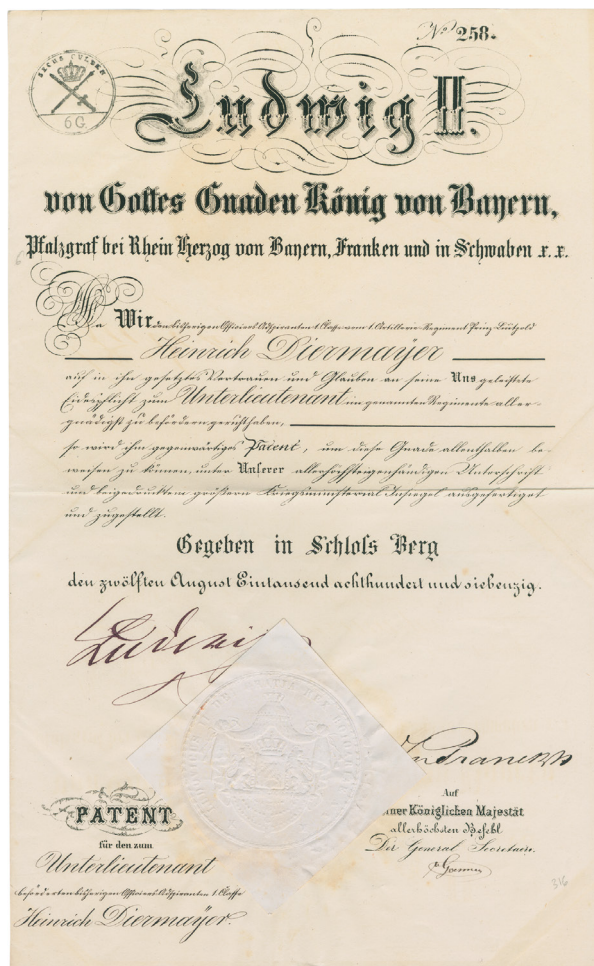 No 258.
SECHS GULDEN
6 G.
Ludwig II.
von Gottes Gnaden König von Bayern,
Pfalzgraf bei Rhein Herzog von Bayern, Franken und in Schwaben x. x.
Da Wir den bisherigen Officiers Adspiranten 1. Classe vom 1. Artillerie-Regiment Prinz Luitpold
Heinrich Diermayer
auf in ihn gesetztes Vertrauen und Glauben an seine Uns geleistete
Eidespflicht zum Unterlieutenant im genannten Regimente aller-
gnädigst zu befördern geruht haben,
so wird ihm gegenwärtiges Patent, um diese Gnade allenthalben be-
weisen zu können, unter Unserer allerhöchsteigenhändigen Unterschrift
und beigedrucktem größern Kriegsministerial Insiegel ausgefertiget
und zugestellt.
Gegeben in Schloss Berg
den zwölften August Eintausend achthundert und siebenzig.
Ludwig
Pranckh
PATENT
für den zum
Unterlieutenant
beförderten bisherigen Officiers Adspiranten 1. Classe
Heinrich Diermayer.
Auf
iner Königlichen Majestät
allerhöchsten Befehl
Der General Secretaire.
316